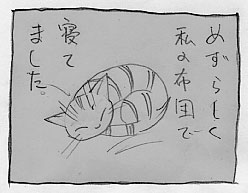 めずらしく
私の布団で
寝て
ました。